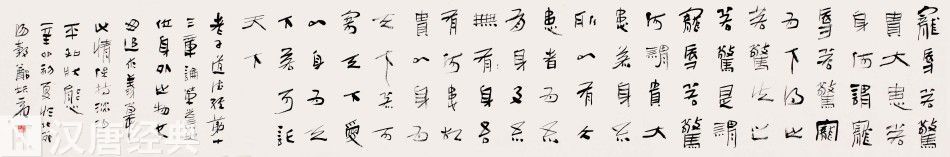 寵辱若驚
貴大患若
身何謂寵
辱若驚寵
為下得之
若驚失之
若驚是謂
寵辱若驚
何謂貴大
患若身吾
所以有大
患者為吾
有身及吾
無身吾
有何患故
貴以身為
天下若可
寄天下愛
以身為天
下若可託
天下
老子道法經第十
三章論榮
位身外之物也
平和狀態
汉唐经典